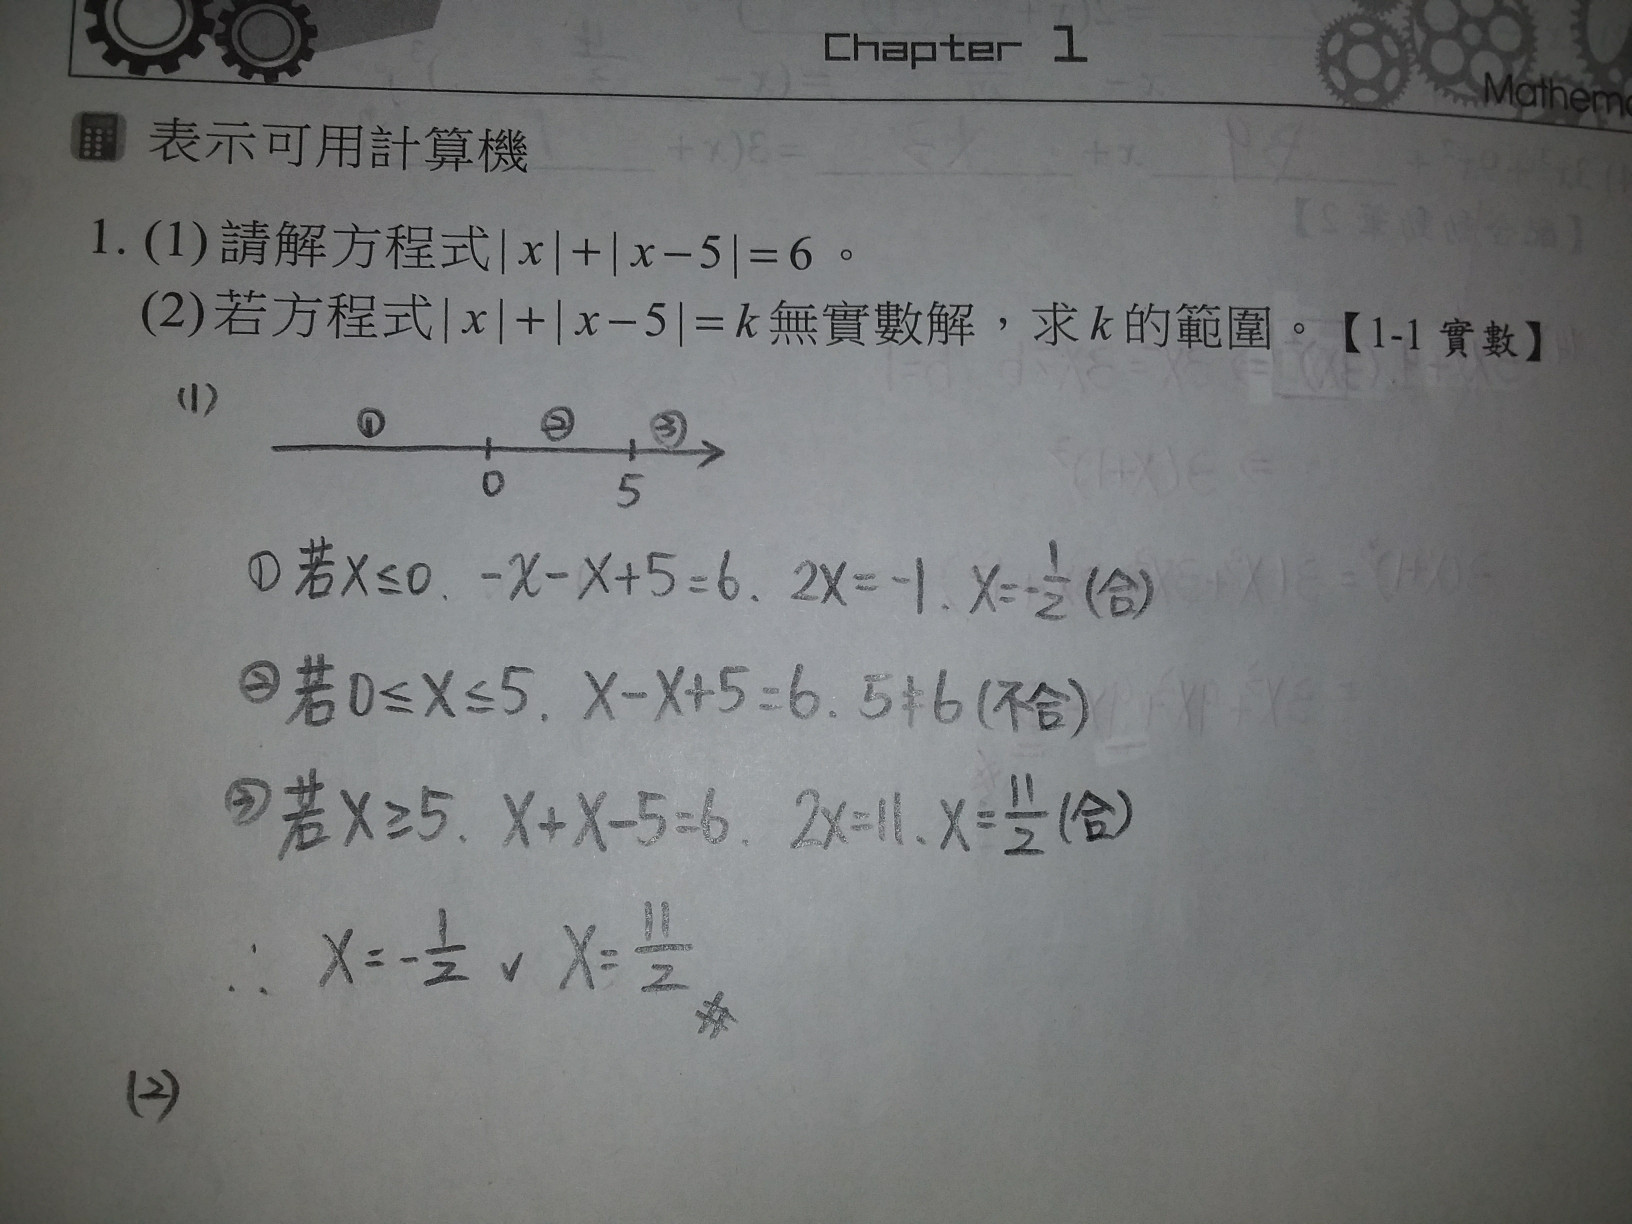 Chapter 1
Mathem
表示可用計算機
1. (1) 請解方程式|x|+|x-5|=6。
(2) 若方程式|x|+|x-5|=k無實數解，求k的範圍。【1-1 實數】
(1)
① ② ③
0 5
① 若x≤0. -x-x+5=6. 2x=-1. x=-1/2 (合)
② 若0≤x≤5. x-x+5=6. 5≠6 (不合)
③ 若x≥5. x+x-5=6. 2x=11. x=11/2 (合)
∴ x=-1/2 ∨ x=11/2 ※
(2)